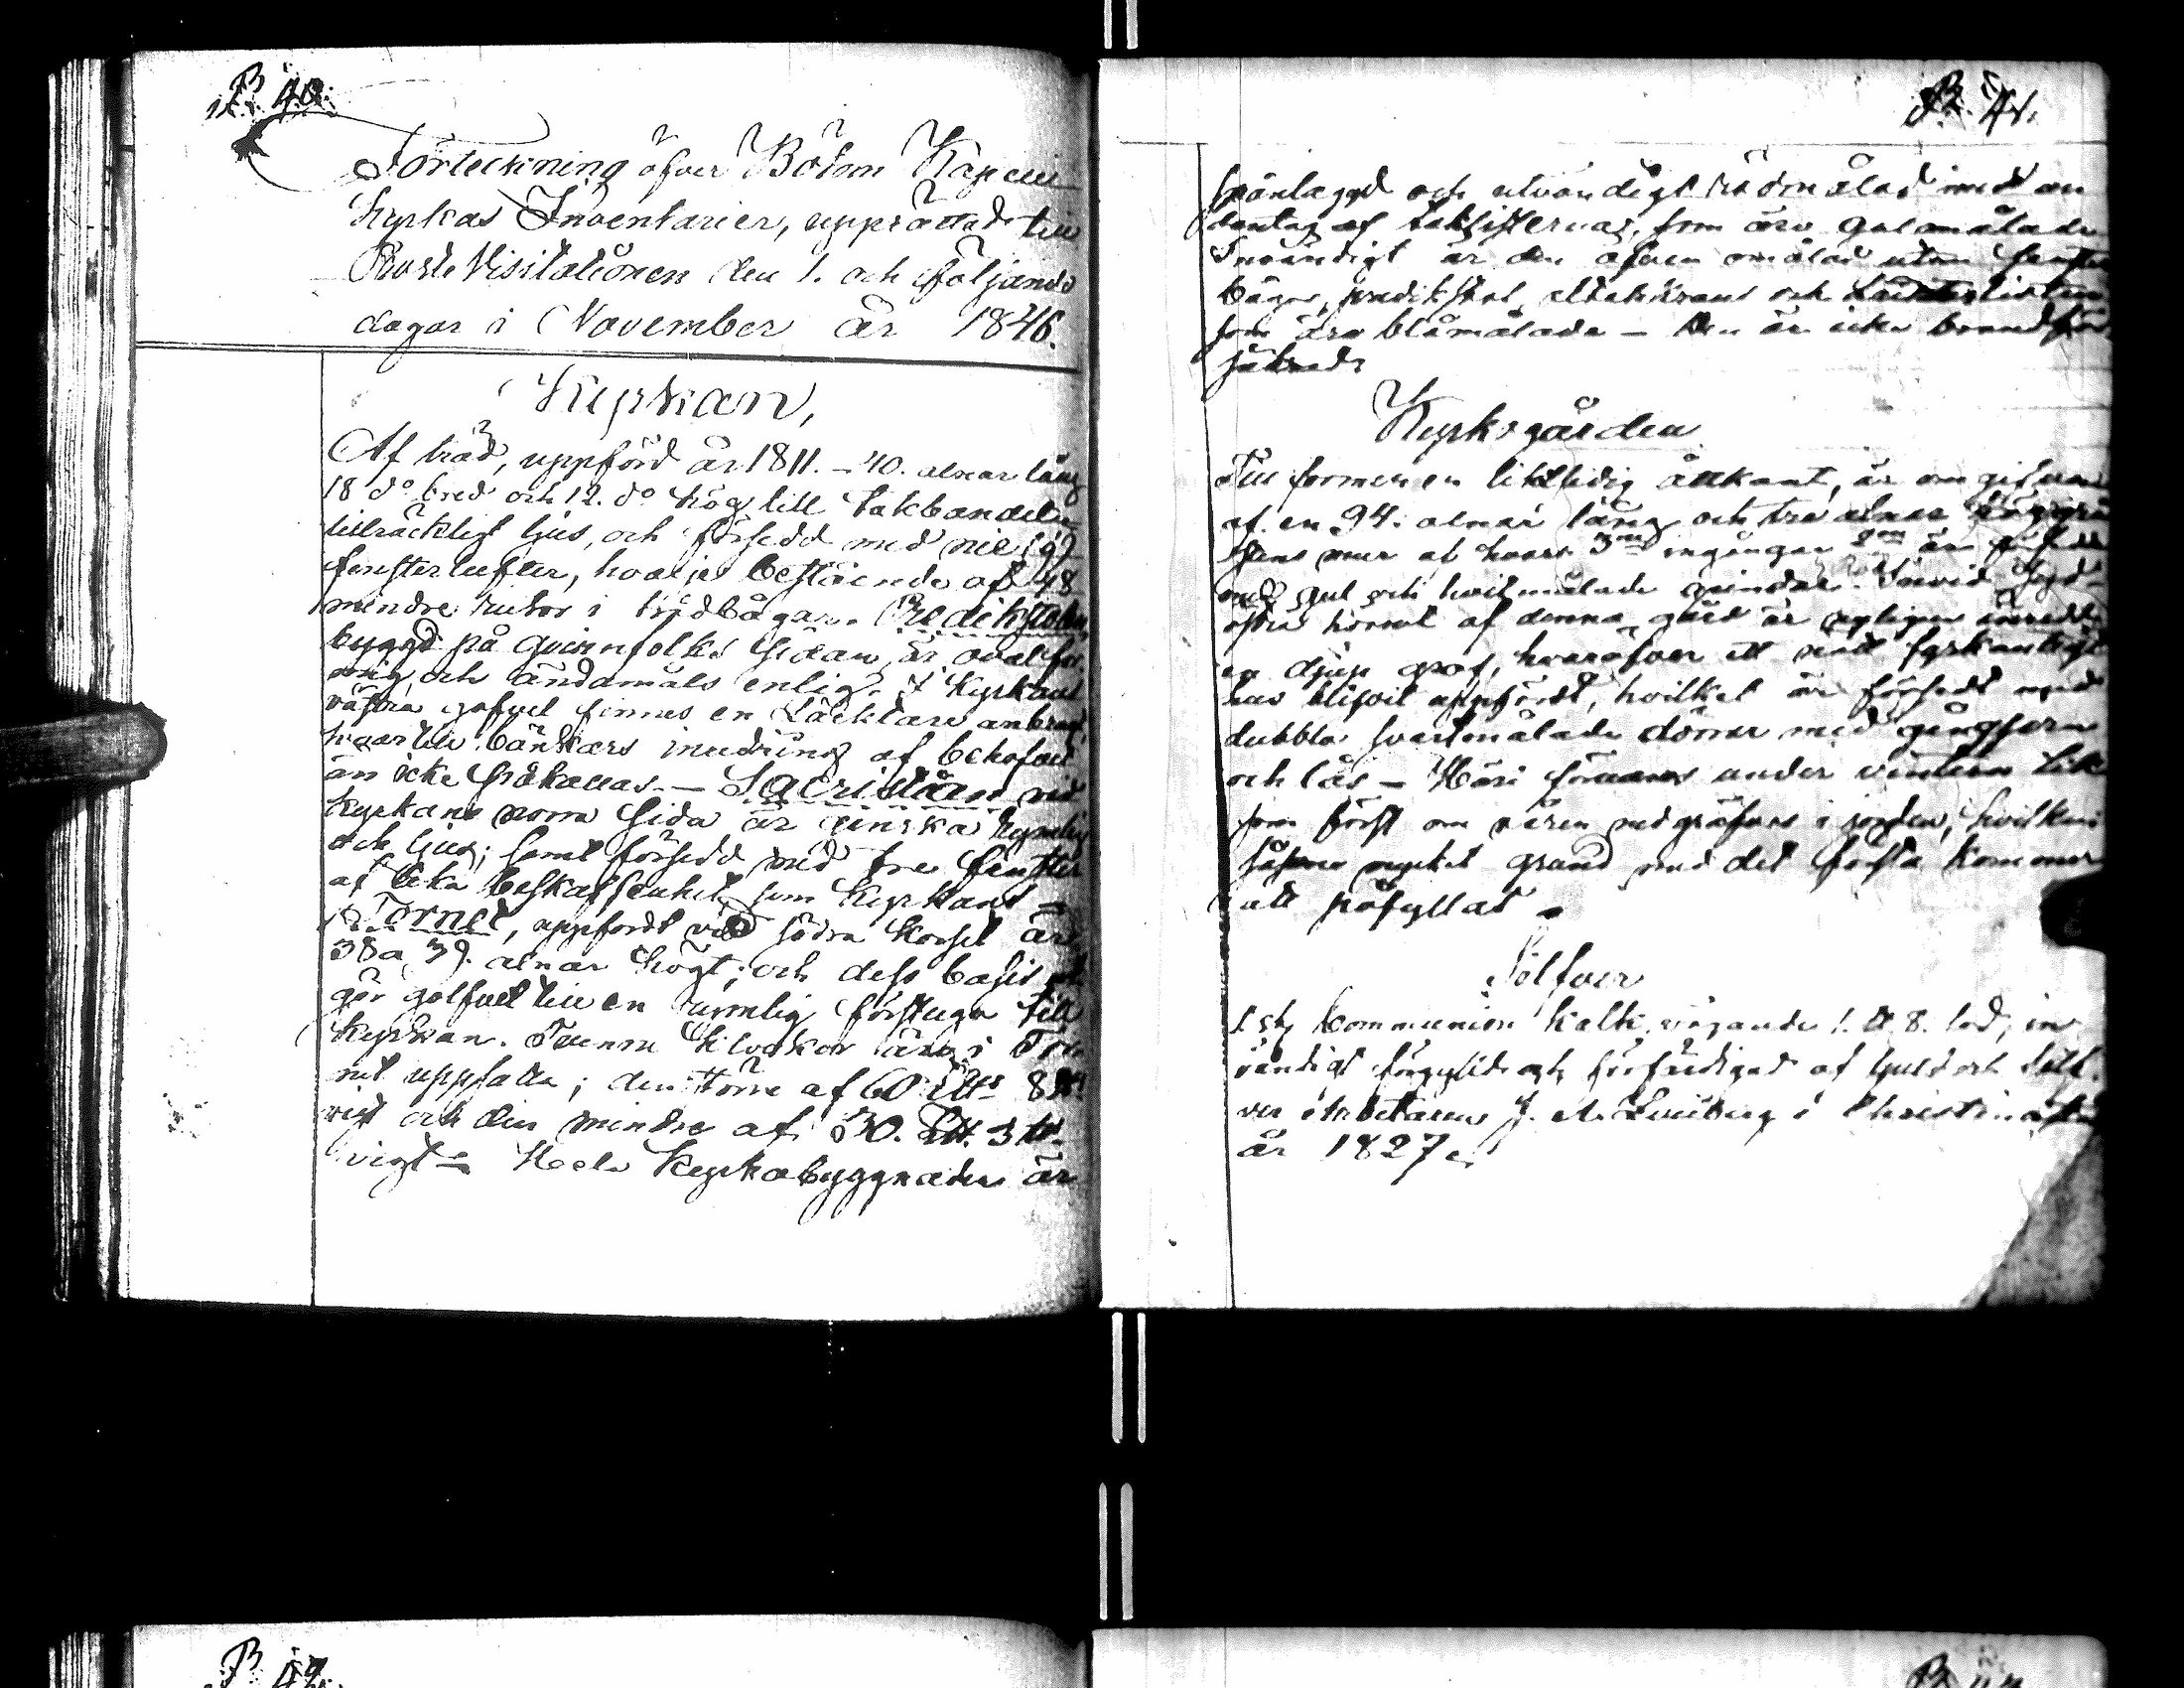 B. 40.
Förteckning öfver Bötom Kapell
Kyrkas Inventarier, upprättad till
Prosте Visitationen den 1. och följande
dagar i November år 1846.
Kyrkan,
Af träd, uppförd år 1811. – 40. alnar lång
18 do bred och 12. do hög till takbandet
tillräckligt ljus, och försedd med nie (9)
fenster lufter, hvarje bestående af 48
mindre rutor i trädbågar. Predikstolen,
byggd på qvinnfolks sidan, är oval for-
mig och ändamåls enlig. I Kyrkans
västra gafvel finnes en Läcktare anbragt,
hvartill bänkars inredning af behofvet
än icke påkallas. – Sacristian vid
Kyrkans norra sida är ganska rymlig
och ljus; samt försedd med tre fenster
af lika beskaffenhet som Kyrkans –
Tornet, uppfördt vid södra Korset är
38 a 39. alnar högt; och dess basis ut-
gör golfvet till en rymlig förstuga till
Kyrkan. Tvenne Klockor äro i Tor-
net uppsatta; den större af 60
vigt och den mindre af 30. 3
vigt – Hela Kyrkobyggnaden är
B. 41.
spånlagd och utvändigt rödmålad med un-
dantag af taklisterna, som äro gulmålade
Invändigt är den äfven omålad utom fenster
bågar, predikstol, altarkrans och
som äro blåmålade – Den är icke brandför-
säkrad.
Kyrkogården
Till formen en liksidig åttkant, är omgifven
af en 94. alnar lång och tre alnar
stens mur at hvars 3ne ingångar 2ne är försedde
med gul och hvitmålade grindar. invid Syd-
östra hörnet af denna gård är nyligen inredd
en djup graf, hvaröfver ett nätt fyrkantigt
hus blifvit uppfördt, hvilket är försedt med
dubbla svartmålade dörrar med gångjern
och lås – Häri förvaras under vintern lik
som först om våren nedgräfvas i jorden, hvilken
såsom mycket grund med det första kommer
att påfyllas –
Silfver
1 st. Communion Kalk, vägande 1. 8. lod, in-
vändigt förgylld och förfärdigad af Guld och Silf-
ver Arbetaren J. A. i Christinæstad
år 1827.
B. 42.